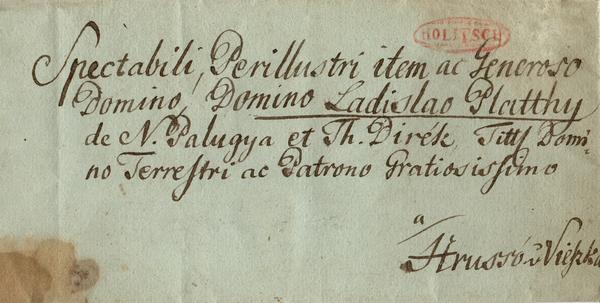 HOLITSCH
Spectabili, Perillustri item ac Generoso
Domino, Domino Ladislao Platthy
de N. Palugya et Th. Direk, Titt Domi-
no Terrestri ac Patrono Gratiosissimo
a
Hrussó